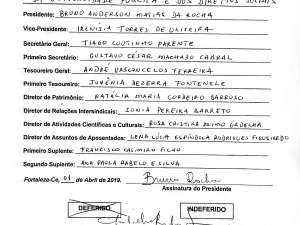 UNIVERSIDADE PÚBLICA E DOS DIREITOS SOCIAIS
Presidente: BRUNO ANDERSON MATIAS DA ROCHA
Vice-Presidente: IRENÍSIA TORRES DE OLIVEIRA
Secretário Geral: TIAGO COUTINHO PARENTE
Primeiro Secretário: GUSTAVO CÉSAR MACHADO CABRAL
Tesoureiro Geral: ANDRÉ VASCONCELOS FERREIRA
Primeiro Tesoureiro: JUVÊNIA BEZERRA FONTENELE
Diretor de Patrimônio: NATÁLIA MARIS CORDEIRO BARROSO
Diretor de Relações Intersindicais: SONIA PEREIRA BARRETO
Diretor de Atividades Científicas e Culturais: ROSA CRISTINA PRIMO GADELHA
Diretor de Assuntos de Aposentados: LENA LÚCIA ESPÍNDOLA RODRIGUES FIGUEIREDO
Primeiro Suplente: FRANCISCO CASIMIRO FILHO
Segundo Suplente: ANA PAULA RABELO E SILVA
Fortaleza-Ce, 01 de Abril de 2019. Bruno Rocha
Assinatura do Presidente
DEFERIDO INDEFERIDO